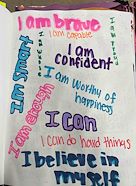 I am brave
I am capable
I am
confident
I am smart
I am Worthy of
happiness
I am enough
I can
I can do hard things
I believe in
myself